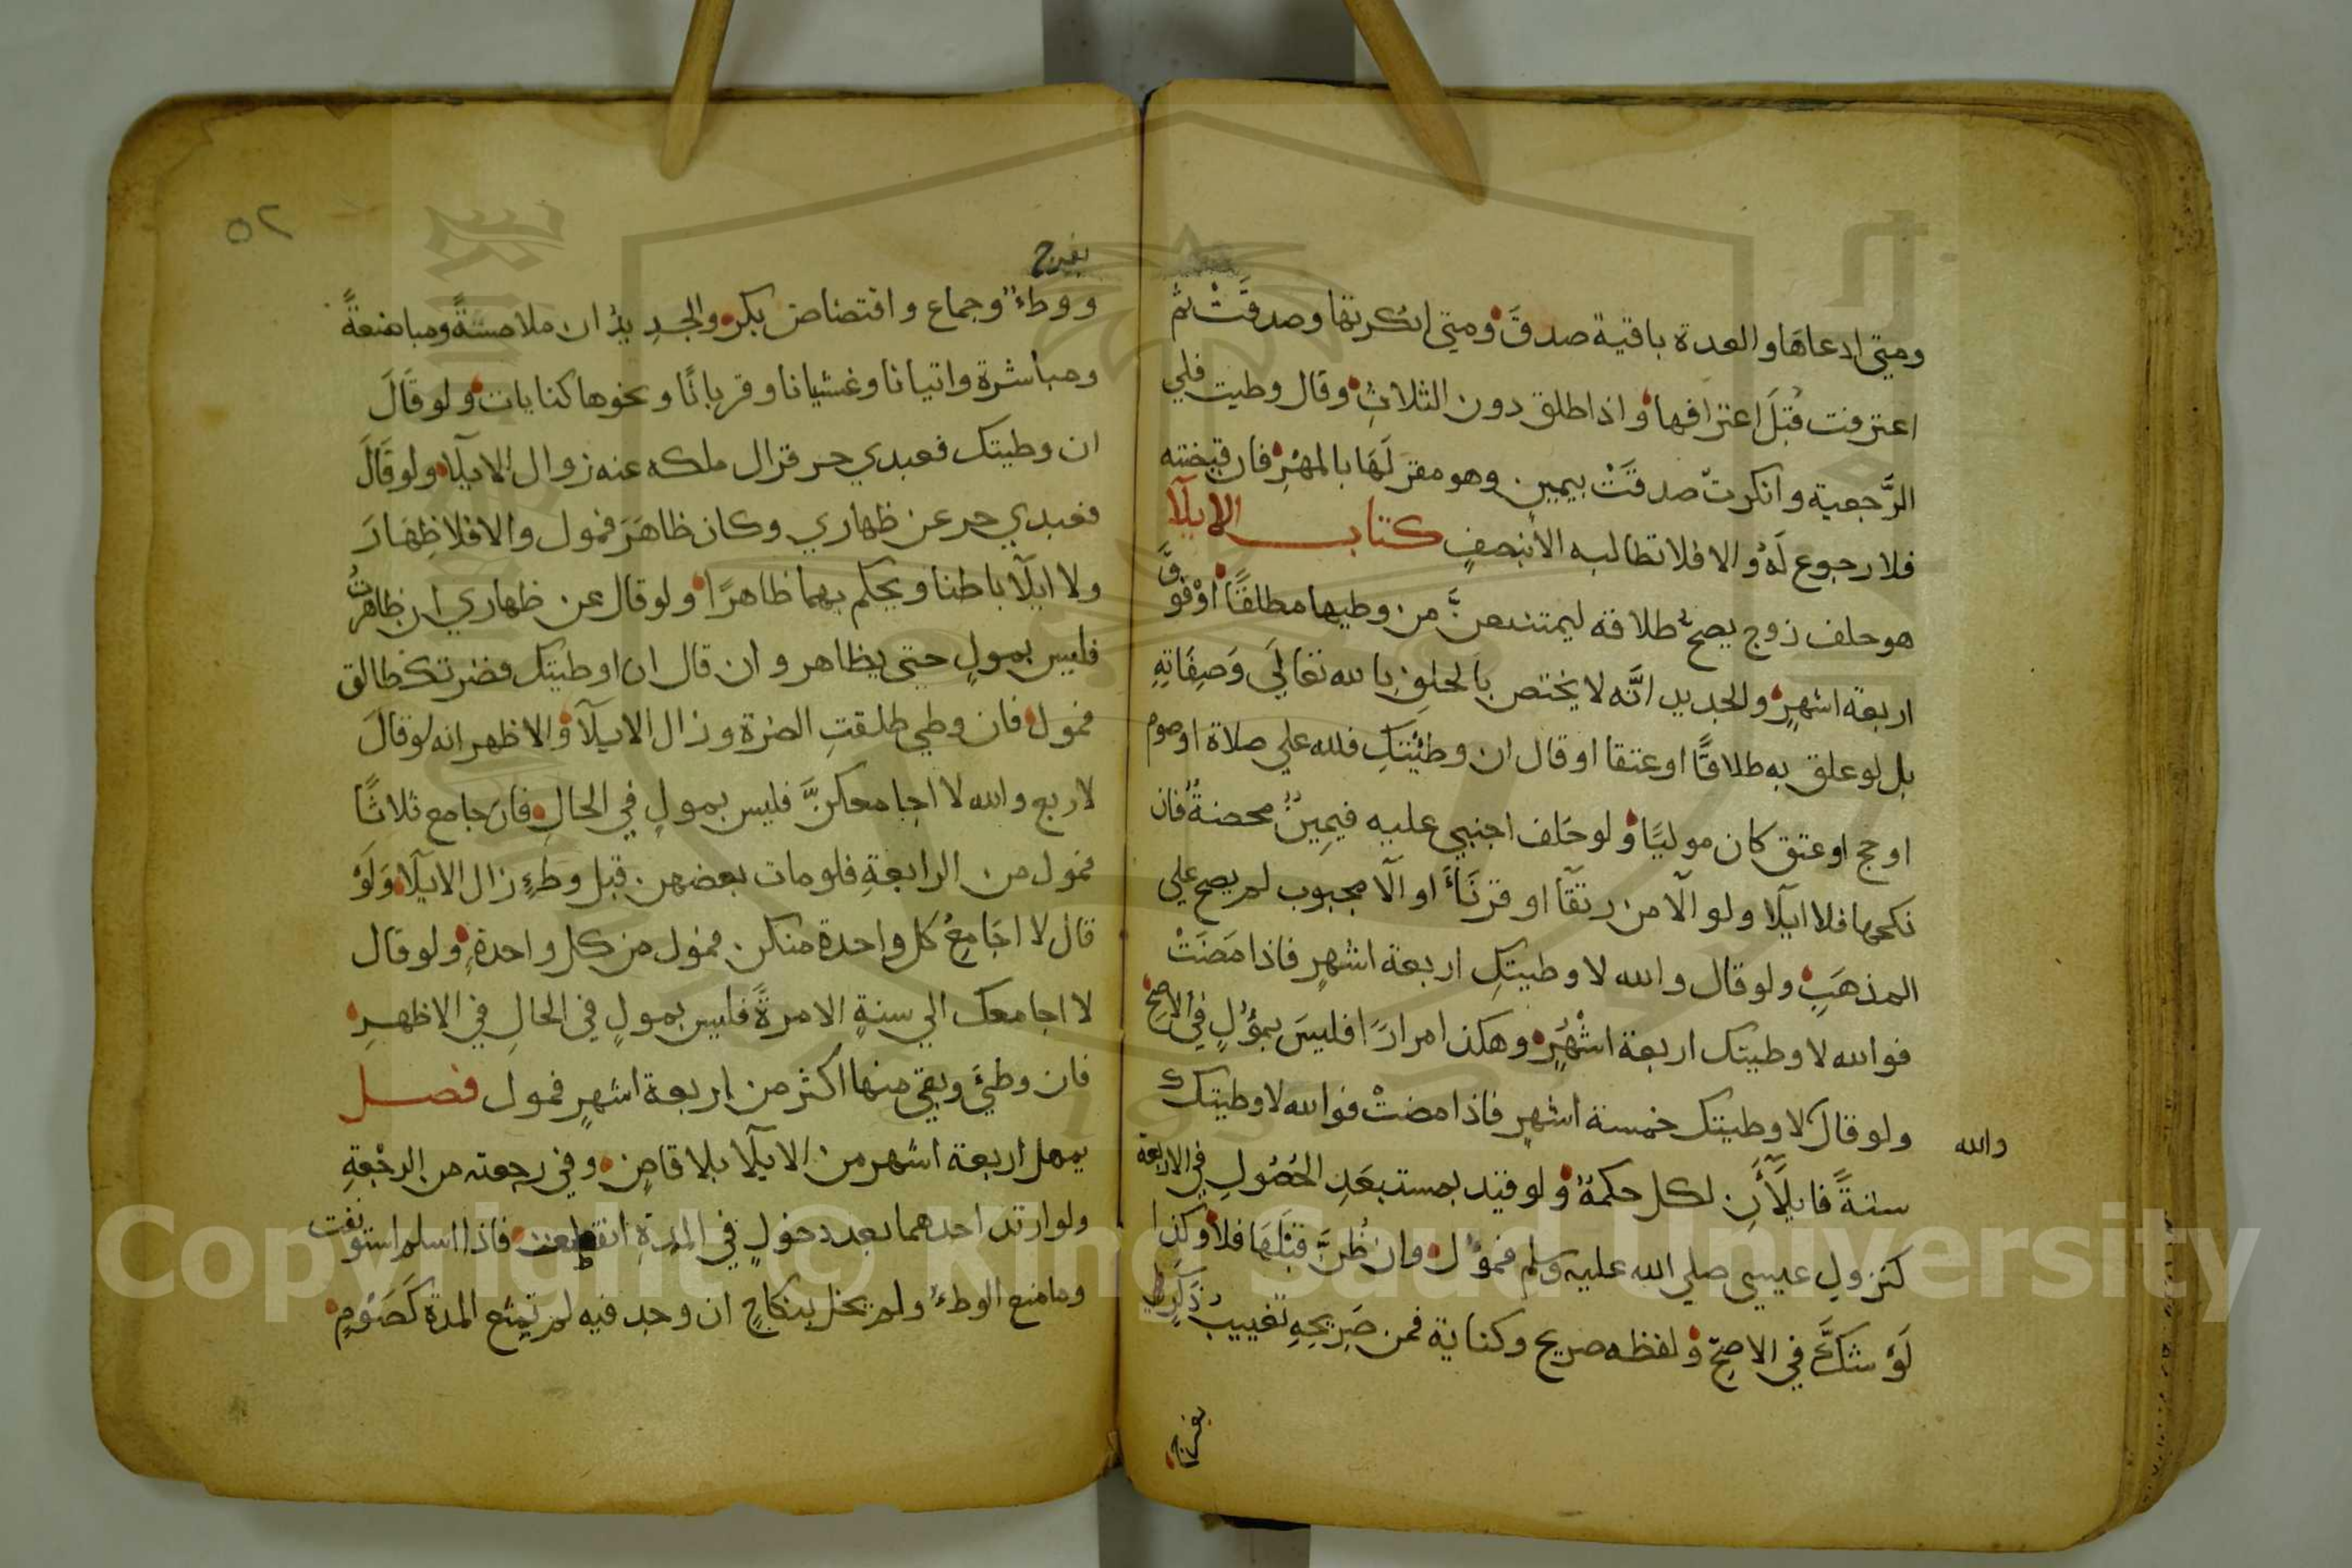 ومتي ادعاها والعدة باقية صدق ومتي انكرتها وصدقت ثم
اعترفت قبل اعترافها واذا طلق دون الثلاث وقال وطيت فلي
الرجعية وانكرت صدقت بيمين وهو مقر لها بالمهر فان قبضته
فلا رجوع له والا فلا تطالبه الا بنصف كتاب الايلآ
هو حلف زوج يصح طلاقه ليمتنعن من وطيها مطلقا او فوق
اربعة اشهر والجديد انه لا يختص بالحلف بالله تعالي وصفاته
بل لو علق به طلاقا او عتقا او قال ان وطئتك فلله علي صلاة او صوم
او حج او عتق كان موليا ولو حلف اجنبي عليه فيمين محضنة فان
نكحها فلا ايلآ ولو الآ من رتقآ او قرنآء او الآ مجبوب لم يصح علي
المذهب ولو قال والله لا وطيتك اربعة اشهر فاذا مضت
فوالله لا وطيتك اربعة اشهر وهكذا مرارا فليس بمول في الاصح
ولو قال لا وطيتك خمسة اشهر فاذا مضت فوالله لا وطيتك
والله
سنة فايلآأن لكل حكمه ولو قيد بمستبعد الحصول في الاربعة
كنزول عيسي صلي الله عليه وسلم فمول وان ظن قبلها فلا وكذا
لو شك في الاصح ولفظه صريح وكناية فمن صريحه تغييب ذكر
بفرج
٥٢
بفرج
ووطء وجماع وافتضاض بكر والجديد ان ملامسة ومباضعة
ومباشرة واتيانا وغشيانا وقربانا ونحوها كنايات ولو قال
ان وطيتك فعبدي حر فزال ملكه عنه زوال الايلآ ولو قال
فعبدي حر عن ظهاري وكان ظاهر فمول والا فلا ظهار
ولا ايلآ باطنا ويحكم بهما ظاهرا ولو قال عن ظهاري ان ظاهرت
فليس بمول حتي يظاهر وان قال ان اوطيتك فضرتك طالق
فمول فان وطي طلقت الضرة وزال الايلآ والاظهر انه لو قال
لاربع والله لا اجامعكن فليس بمول في الحال فان جامع ثلاثا
فمول من الرابعة فلو مات بعضهن قبل وطء زال الايلآ ولو
قال لا اجامع كل واحدة منكن فمول من كل واحدة ولو قال
لا اجامعك الي سنة الا مرة فليس بمول في الحال في الاظهر
فان وطئ وبقي منها اكثر من اربعة اشهر فمول فصل
يمهل اربعة اشهر من الايلآ بلا قاض وفي رجعته من الرجعة
ولو ارتد احدهما بعد دخول في المدة انقطعت فاذا اسلم استونفت
وما منع الوطء ولم يخل بنكاح ان وجد فيه لم تمنع المدة كصوم